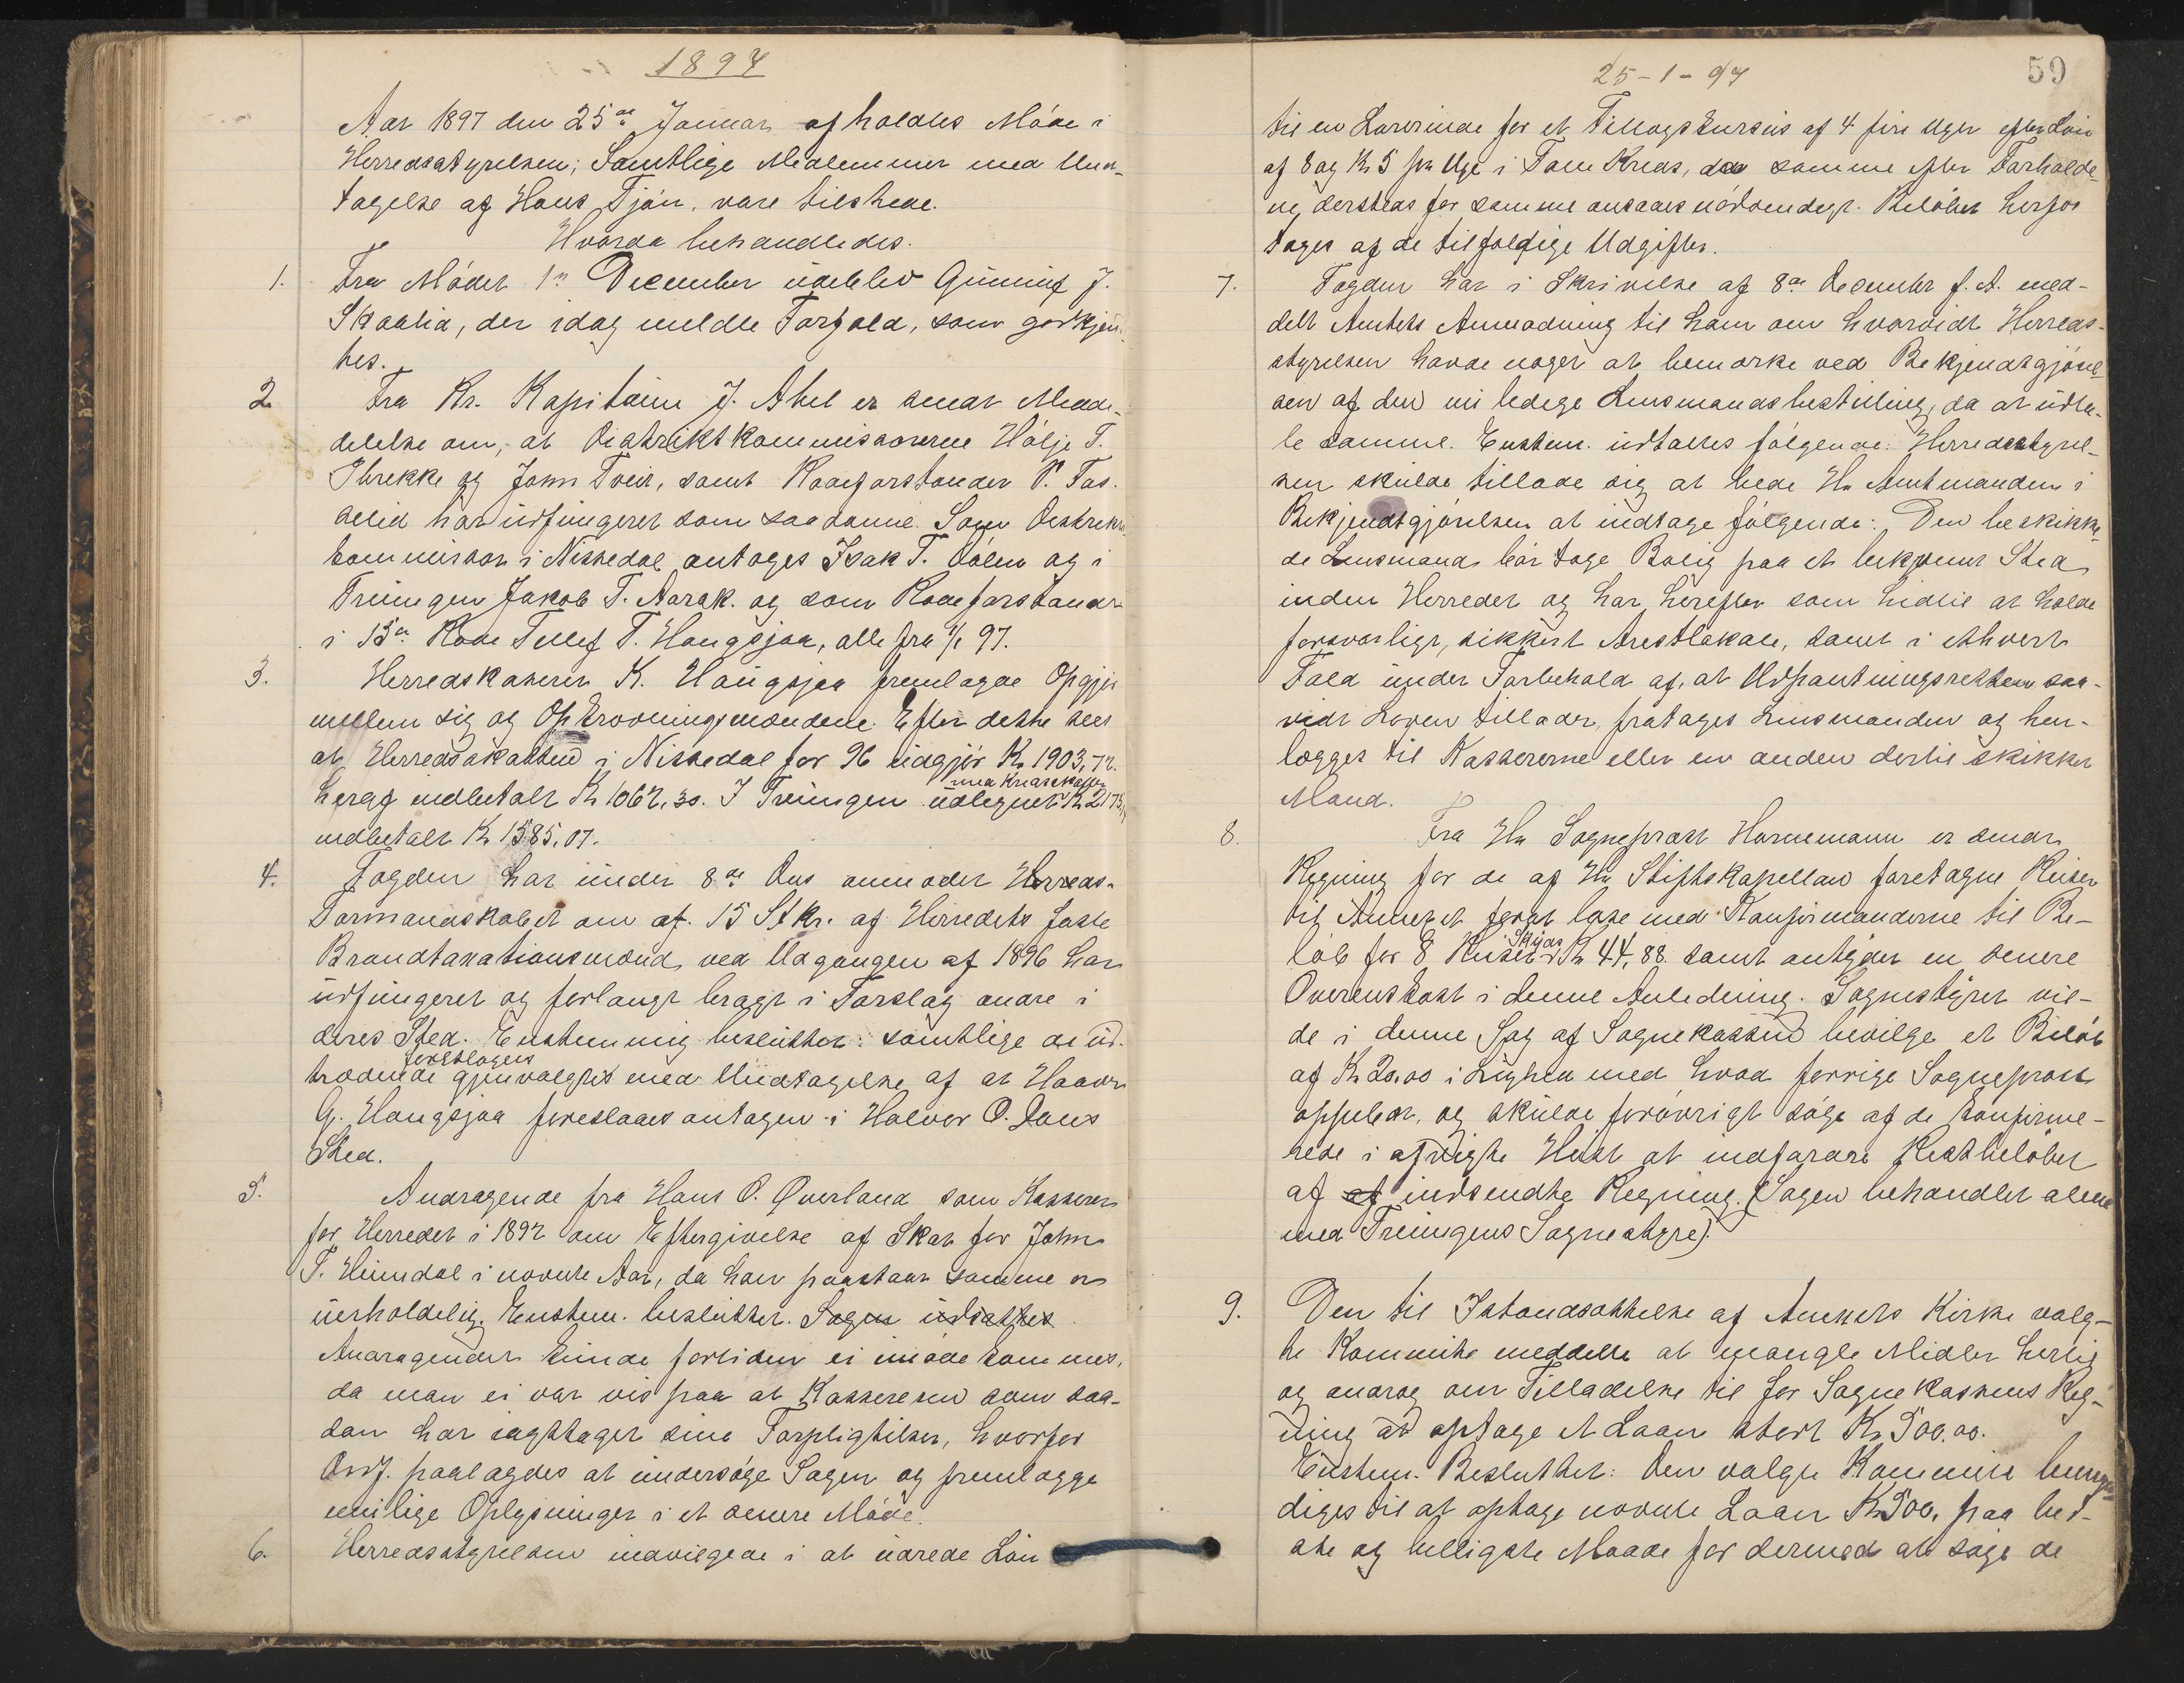 1897
Aar 1897 den 25de Januar afholdtes Møde i
Herredsstyrelsen; Samtlige Medlemmer med Und-
tagelse af Hans Tjøn, vare tilstede.
Hvorda behandledes.
1. Fra Mødet 1ste December udeblev Gunnuf J.
Skaalid, der idag meldte Forfald, som godkjen-
tes.
2 Fra Kr. Kapitain J. Abel er sendt Medde-
delelse om, at Distriktkommissærerne Hølje T.
Threkke og John Tveit, samt Rodeforstander P. Fos-
selid har udfungeret som saadanne. Som Distrikts
kommissær i Nissedal antoges Isak T. Dølen og i
Treungen Jakob T. Aarak. og som Rodeforstander
i 13de Rode Tellef T. Haugsjaa, alle fra 1/1 97.
3. Herredskaserer K. Haugsjaa fremlagde Opgjør
mellem sig og Opkrævningsmændene. Efter dette sees
at Herredsskatten i Nissedal for 96 udgjør Kr 1903,72.
heraf indbetalt Kr 1067,30. I Treungen udlignet med Kredsskatten Kr 2173,
indbetalt Kr 1385,07.
4. Fogden har under 8de Ds anmodet Herreds-
Formandskabet om at 15 Stkr. af Herredets faste
Brandtaxationsmænd, ved Udgangen af 1896 har
udfungeret og forlangt bragt i Forslag andre i
deres Sted. Enstemmig besluttet: samtlige de ud-
trædende foreslagees gjenvalgte med Undtagelse af at Haavr
G. Haugsjaa foreslaaes antagen i Halvor O. Dans
Sted.
5. Andragende fra Hans O. Qverland som Kasserer
for Herredet i 1892 om Eftergivelse af Skat for John
T. Heimdal i nævnte Aar, da han paastaar samme er
uerholdelig. Enstem. besluttet. Sagen udsættes
Andragendet kunde fortiden ei imødekommes,
da man ei var vis paa at Kassereren som saa-
dan har iagttaget sine Forpligtelser, hvorfor
Ordf. paalagdes at undersøge Sagen og fremlægge
mulige Oplysninger i et senere Møde.
6. Herredsstyrelsen indvilgede i at udrede Løn
25-1-97
59
til en Lærerinde for et Tillægskursus af 4 fire Uger efter Løn
af 8 og Kr 5 pr Uge i Fone Kreds, da samme efter Forholde-
ne dersteds for samme ansaaes nødvendigt. Beløbet herfor
tages af de tilfældige Udgifter.
7. Fogden har i Skrivelse af 8de December f. A. med-
delt Amtets Anmodning til ham om hvorvidt Herreds-
styrelsen havde noget at bemærke ved Bekjendtgjørel-
sen af den nu ledige Lensmandsbestilling, da at udta-
le samme. Enstem. udtaltes følgende: Herredsstyrel-
sen skulde tillade sig at bede Hr Amtmanden i
Bekjendtgjørelsen at indtage følgende: Den beskikke-
de Lensmand bør tage Bolig paa et bekvemt Sted
inden Herredet og har herefter som hidtil at holde
forsvarligt, sikkert Arestlokale, samt i ethvert
Fald under Forbehold af, at Udpantningsretten saa-
vidt Loven tillader, fratages Lensmanden og hen-
lægges til Kassererne eller en anden dertil skikket
Mand.
8. Fra Hr Sogneprest Hornemann er sendt
Regning for de af Hr Stiftskapellan foretagne Reiser
til Annexet forat læse med Konfirmanderne til Be-
løb for 8 Reiser Skyds Kr 44,88. samt antyder en senere
Overenskost i denne Anledning. Sognestyret vil-
de i denne Sag af Sognekassen bevilge et Beløb
af Kr 20,00 i Lighed med hvad forrige Sogneprest
oppebar, og skulde forøvrigt søge af de konfirme-
rede i afvigte Høst at indfordre Restbeløbet
af af indsendte Regning. (Sagen behandlet alene
med Treungens Sognestyre).
9. Den til Istandsættelse af Annexets Kirke valg-
te Kommite meddelte at mangle Midler hertil
og androg om Tilladelse til for Sognekassens Reg-
ning at optage et Laan stort Kr 500.00.
Enstem. Besluttet: Den valgte Kommite bemyn-
diges til at optage nævnte Laan Kr 500, paa bed-
ste og billigste Maade for dermed at søge de